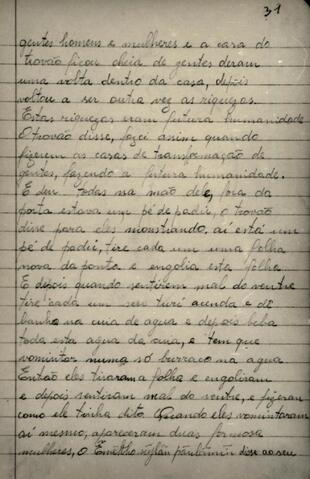 31
gentes homens e mulheres e a casa do
trovão ficou cheia de gentes deram
uma volta dentro da casa, depois
voltou a ser outra vez as riquezas.
Estas riquezas eram futura humanidade
O trovão disse, fazei assim quando
fizerem as casas de transformação de
gentes, fazendo a futura humanidade.
E deu todas na mão dele, fora da
porta estava um pé de padú, o trovão
disse para eles monstrando, aí está um
pé de padú, tire cada um uma folha
nova da ponta e engolia esta folha
E depois quando sentirem mal do ventre
tire cada um seu turí acenda e dê
banho na cuia de agua e depois beba
toda esta agua da cuia, e tem que
vomintar numa só burraco na agua
Então eles tiraram a folha e engoliram
e depois sentiram mal do ventre, e fizeram
como ele tinha dito. Quando eles vomintaram
aí mesmo, apareceram duas formosa
mulheres, O disse ao seu